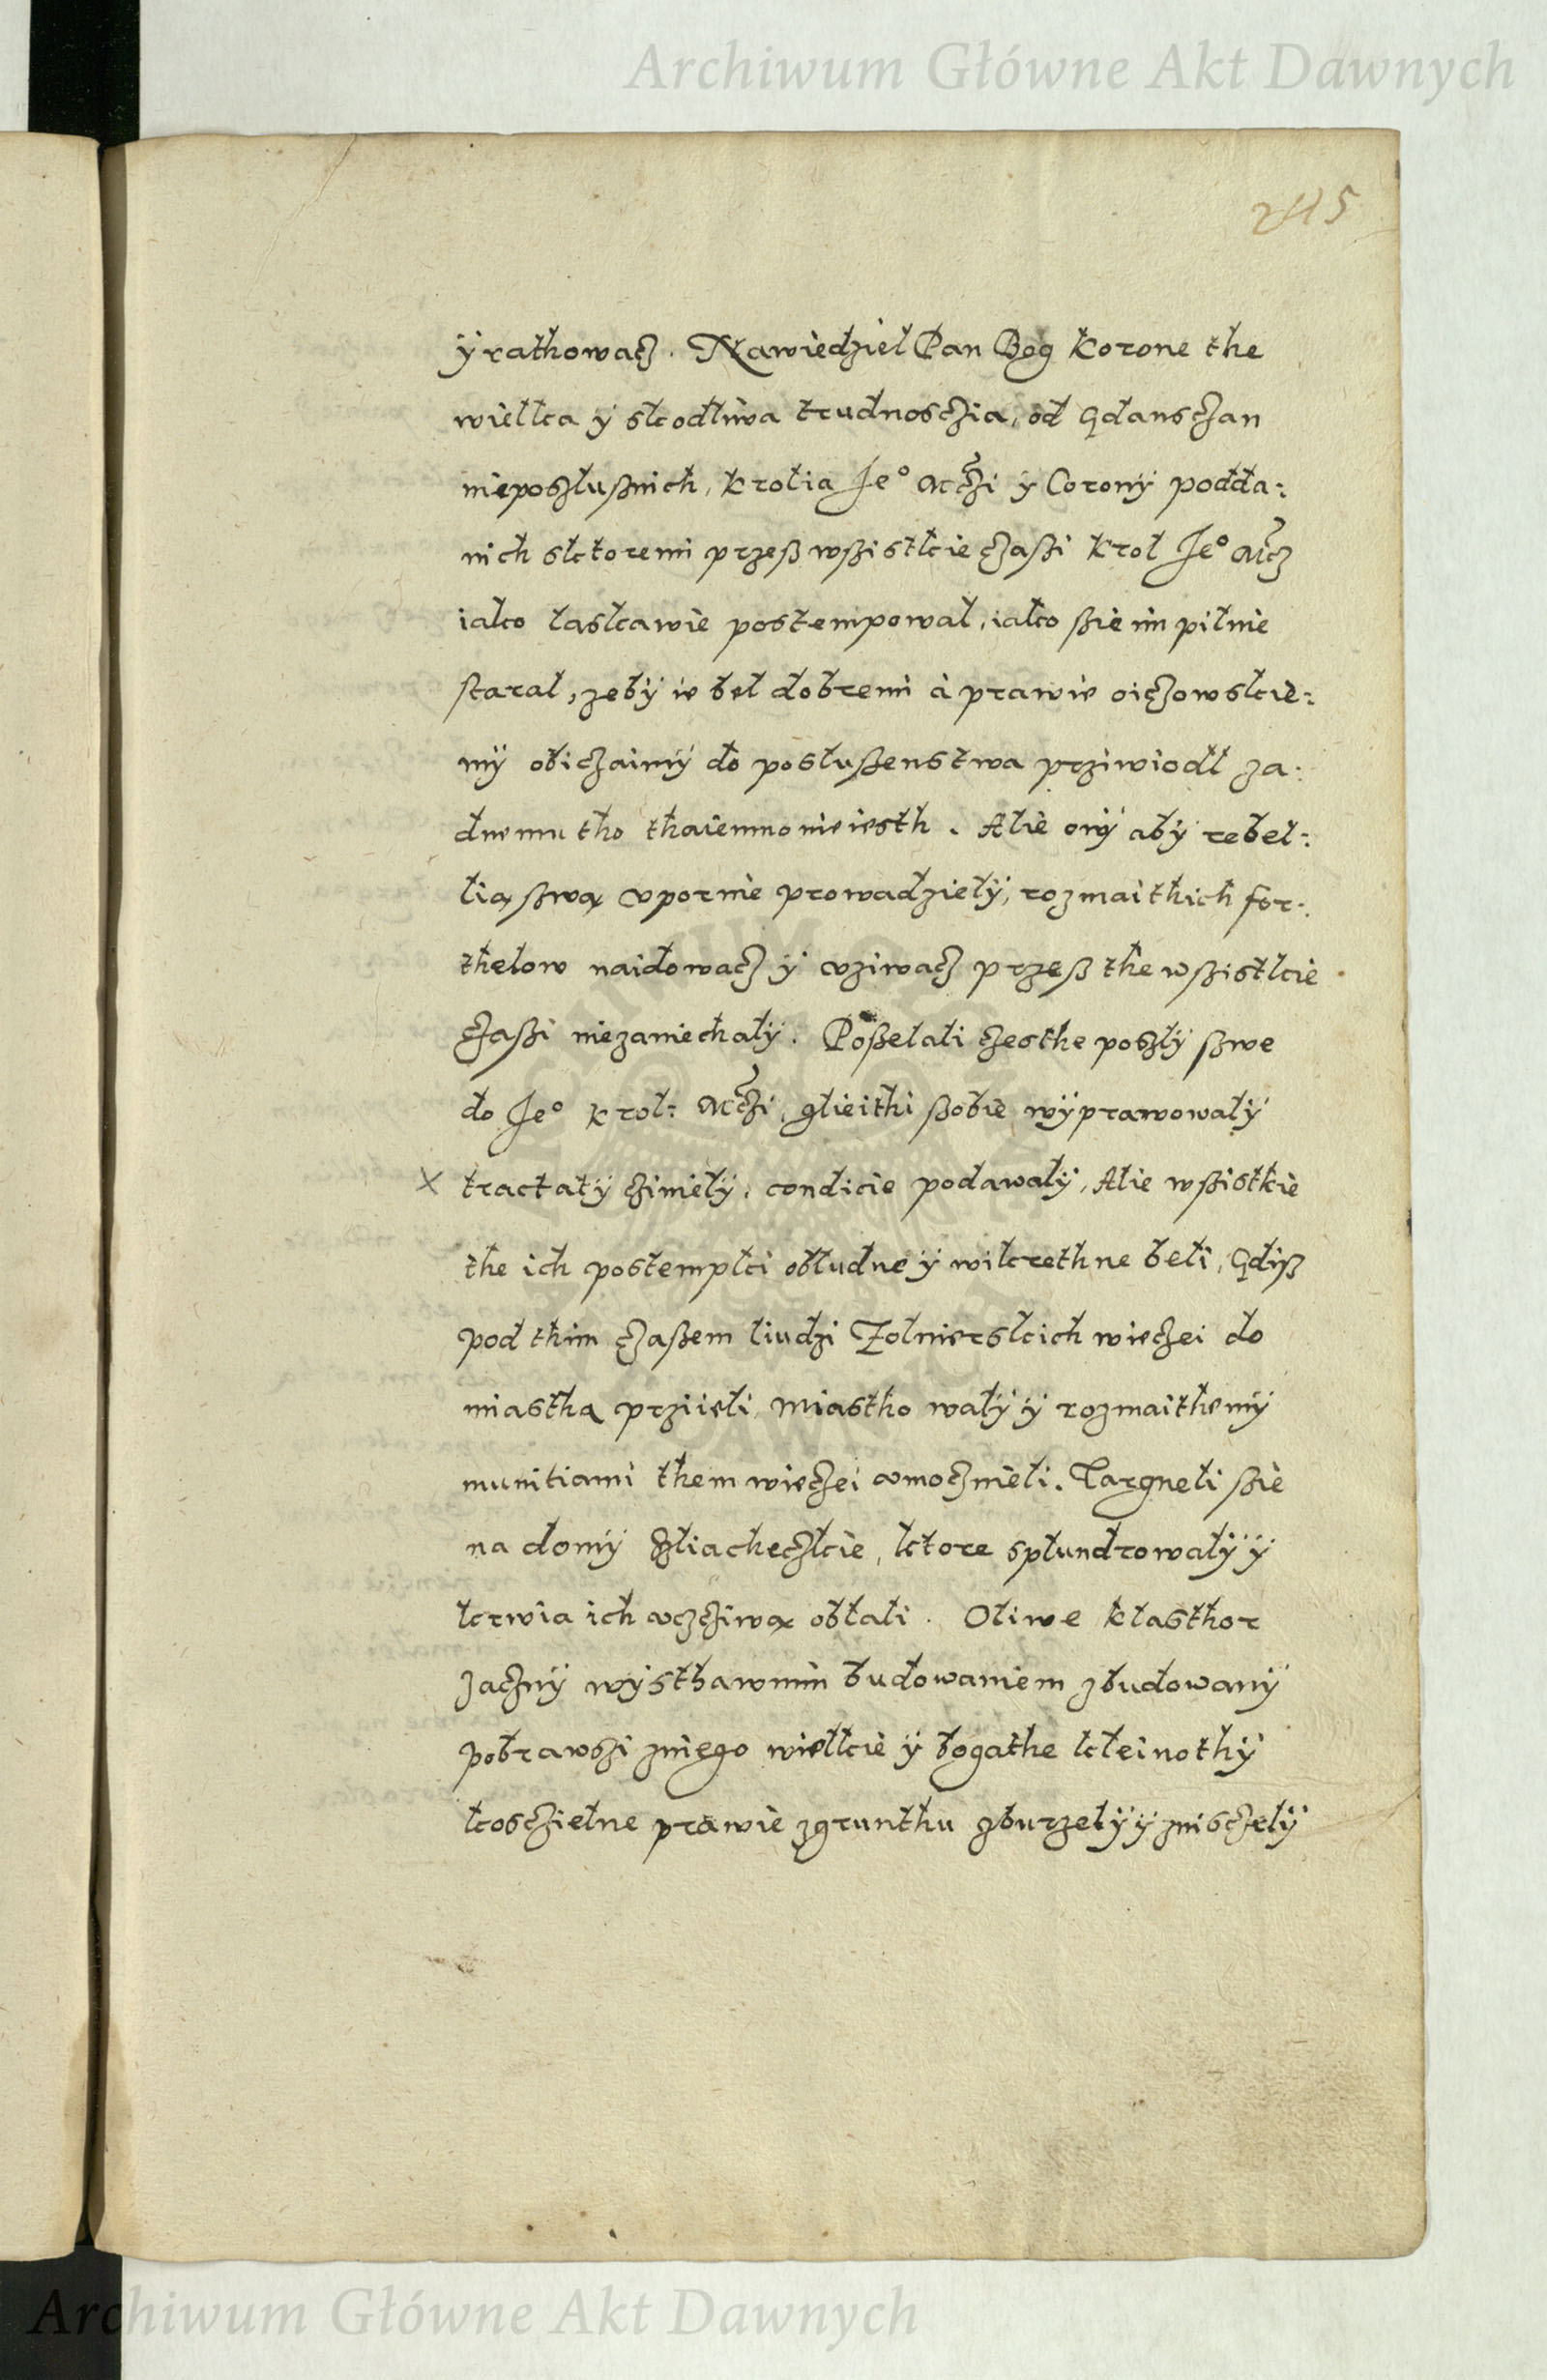 Archiwum Główne Akt Dawnych
ÿ rathowacz. Nawiedziel Pan Bog Korone the
wielka ÿ skodliwa trudnosczia, od Gdansczan
nieposzlusznich, krolia Je° Mczi ÿ Coronÿ podda:
nich sktoremi przeß wßistkie czaßi krol Je° Mcz
iako laskawie postempowal, iako ßie im pilnie
staral, zebÿ ie bel dobremi à prawie oiczowskie:
mÿ obiczaimÿ do posłußenstwa prziwiodl za:
dnemu tho thaiemno nie iesth. Alie onÿ abÿ rebel:
lią ßwą vpornie prowadzielÿ, rozmaithich for:
thelow naidowacz ÿ vziwacz przeß the wßistkie
czaßi niezaniechalÿ. Poßelali czesthe poszlÿ ßwe
do Je° krol: Mczi, glieithi ßobie wÿprawowalÿ
tractatÿ czinielÿ, condicie podawalÿ, Alie wßistkie
the ich postempki obludne ÿ wikrethne beli, Gdiß
pod thim czaßem liudzi Zolnierskich wieczei do
miastha prziieli, Miastho walÿ ÿ rozmaithemÿ
munitiami them wieczei vmocznieli. Targneli ßie
na domÿ szliacheczkie, ktore splundrowalÿ ÿ
krwia ich vczcziwą oblali. Oliwe klasthor
zacznÿ wÿsthawnim budowaniem zbudowanÿ
pobrawszi zniego wielkie ÿ bogathe kleinothÿ
koscziełne prawie zgrunthu zburzelÿ ÿ znisczelÿ
Archiwum Główne Akt Dawnych